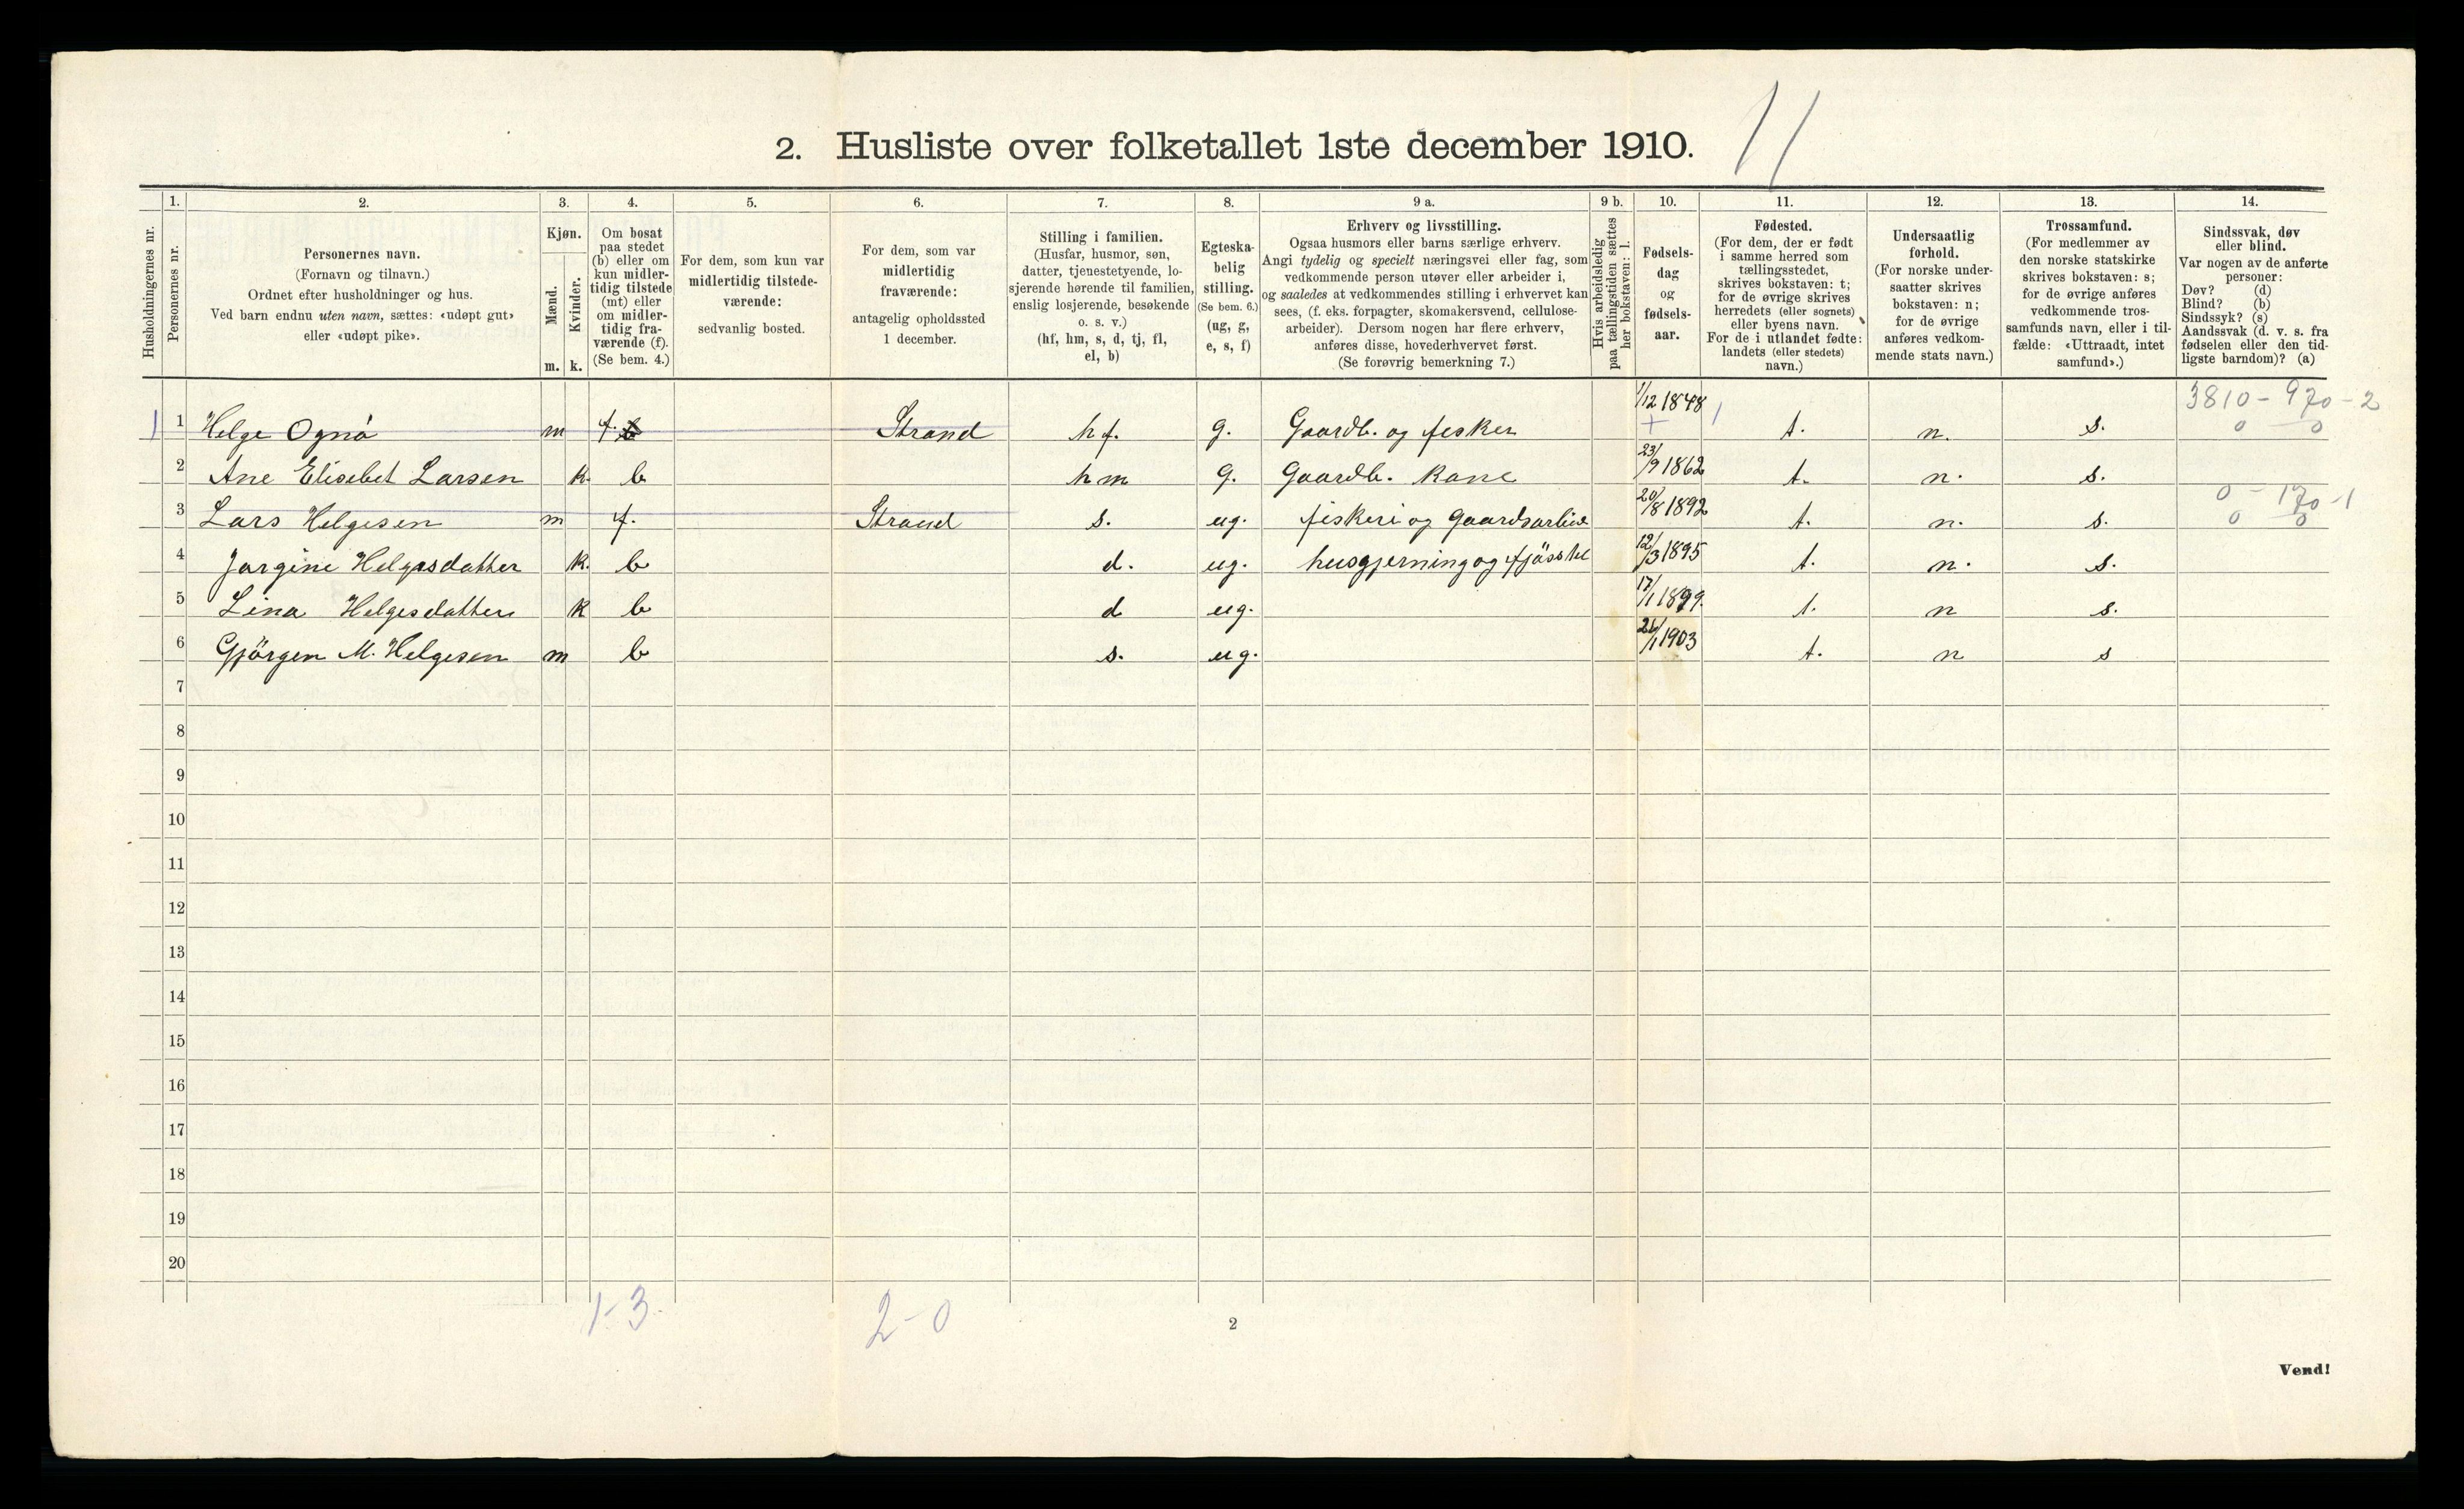 2. Husliste over folketallet 1ste december 1910.
11
Husholdningernes nr.
1.
Personernes nr.
2.
Personernes navn.
(Fornavn og tilnavn.)
Ordnet efter husholdninger og hus.
Ved barn endnu uten navn, sættes: «udøpt gut»
eller «udøpt pike».
3.
Kjøn.
Mænd.
Kvinder.
m. k.
4.
Om bosat
paa stedet
(b) eller om
kun midler-
tidig tilstede
(mt) eller
om midler-
tidig fra-
værende (f).
(Se bem. 4.)
5.
For dem, som kun var
midlertidig tilstede-
værende:
sedvanlig bosted.
6.
For dem, som var
midlertidig
fraværende:
antagelig opholdssted
1 december.
7.
Stilling i familien.
(Husfar, husmor, søn,
datter, tjenestetyende, lo-
sjerende hørende til familien,
enslig losjerende, besøkende
o. s. v.)
(hf, hm, s, d, tj, fl,
el, b)
8.
Egteska-
belig
stilling.
(Se bem. 6.)
(ug, g,
e, s, f)
9 a.
Erhverv og livsstilling.
Ogsaa husmors eller barns særlige erhverv.
Angi tydelig og specielt næringsvei eller fag, som
vedkommende person utøver eller arbeider i,
og saaledes at vedkommendes stilling i erhvervet kan
sees, (f. eks. forpagter, skomakersvend, cellulose-
arbeider). Dersom nogen har flere erhverv,
anføres disse, hovederhvervet først.
(Se forøvrig bemerkning 7.)
9 b.
Hvis arbeidsledig
paa tællingstiden sættes
her bokstaven: l.
10.
Fødsels-
dag
og
fødsels-
aar.
11.
Fødested.
(For dem, der er født
i samme herred som
tællingsstedet,
skrives bokstaven: t;
for de øvrige skrives
herredets (eller sognets)
eller byens navn.
For de i utlandet fødte:
landets (eller stedets)
navn.)
12.
Undersaatlig
forhold.
(For norske under-
saatter skrives
bokstaven: n;
for de øvrige
anføres vedkom-
mende stats navn.)
13.
Trossamfund.
(For medlemmer av
den norske statskirke
skrives bokstaven: s;
for de øvrige anføres
vedkommende tros-
samfunds navn, eller i til-
fælde: «Uttraadt, intet
samfund».)
14.
Sindssvak, døv
eller blind.
Var nogen av de anførte
personer:
Døv? (d)
Blind? (b)
Sindssyk? (s)
Aandssvak (d. v. s. fra
fødselen eller den tid-
ligste barndom)? (a)
3810 - 970 - 2
1 1 Helge Ognø m f. b Strand hf. g. Gaardb. og fisker 1/12 1848 t. n. s. 0 0
2 Ane Elisebet Larsen k. b hm g. Gaardb. Kone 23/9 1862 t. n. s.
0 - 170 - 1
3 Lars Helgesen m f. Strand s. ug. fiskeri og Gaardsarbue 20/8 1892 t. n. s. 0 0
4 Jørgine Helgesdatter k. b d. ug. husgjerning og fjösstel 12/3 1895 t. n. s.
5 Lina Helgesdatter k b d ug. 17/1 1899. t. n s.
6 Gjörgen M. Helgesen m b s. ug. 21/1 1903 t. n s
7
8
9
10
11
12
13
14
15
16
17
18
19
20
1-3. 2-0
2
Vend!